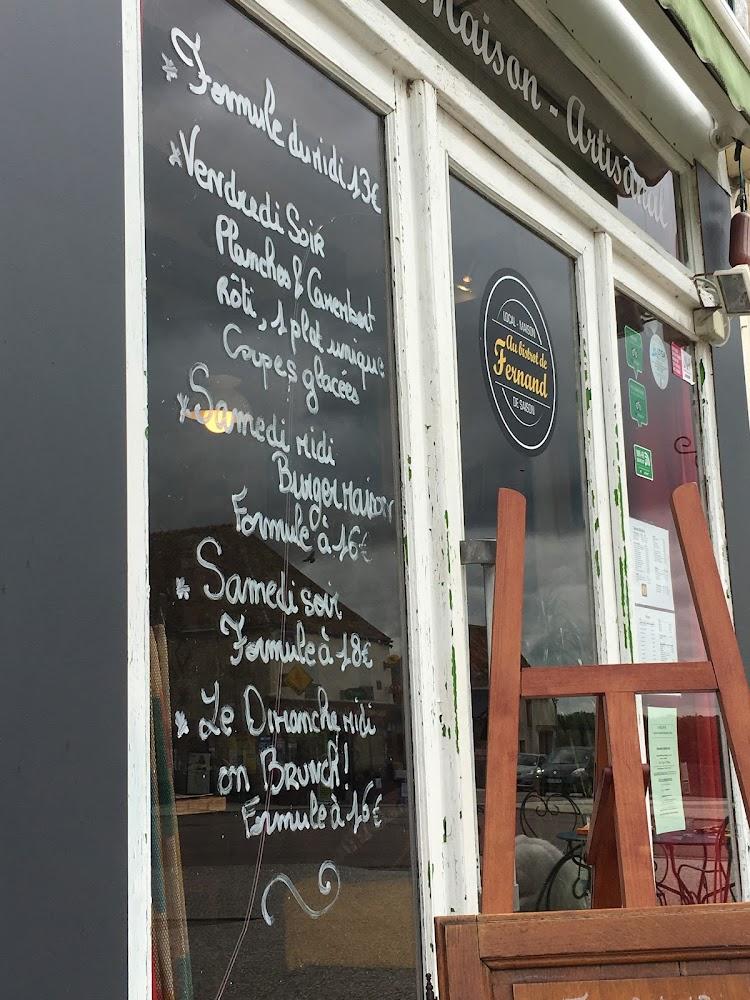 Maison - Artisanal
* Formule du midi 13€
* Vendredi Soir
Planches & Camembert
rôti, 1 plat unique
Coupes glacées
* Samedi midi
Burger maison
Formule à 16€
* Samedi soir
Formule à 18€
* Le Dimanche midi
on BRUNCH!
Formule à 16€
LOCAL - MAISON
Au bistrot de
Fernand
DE SAISON